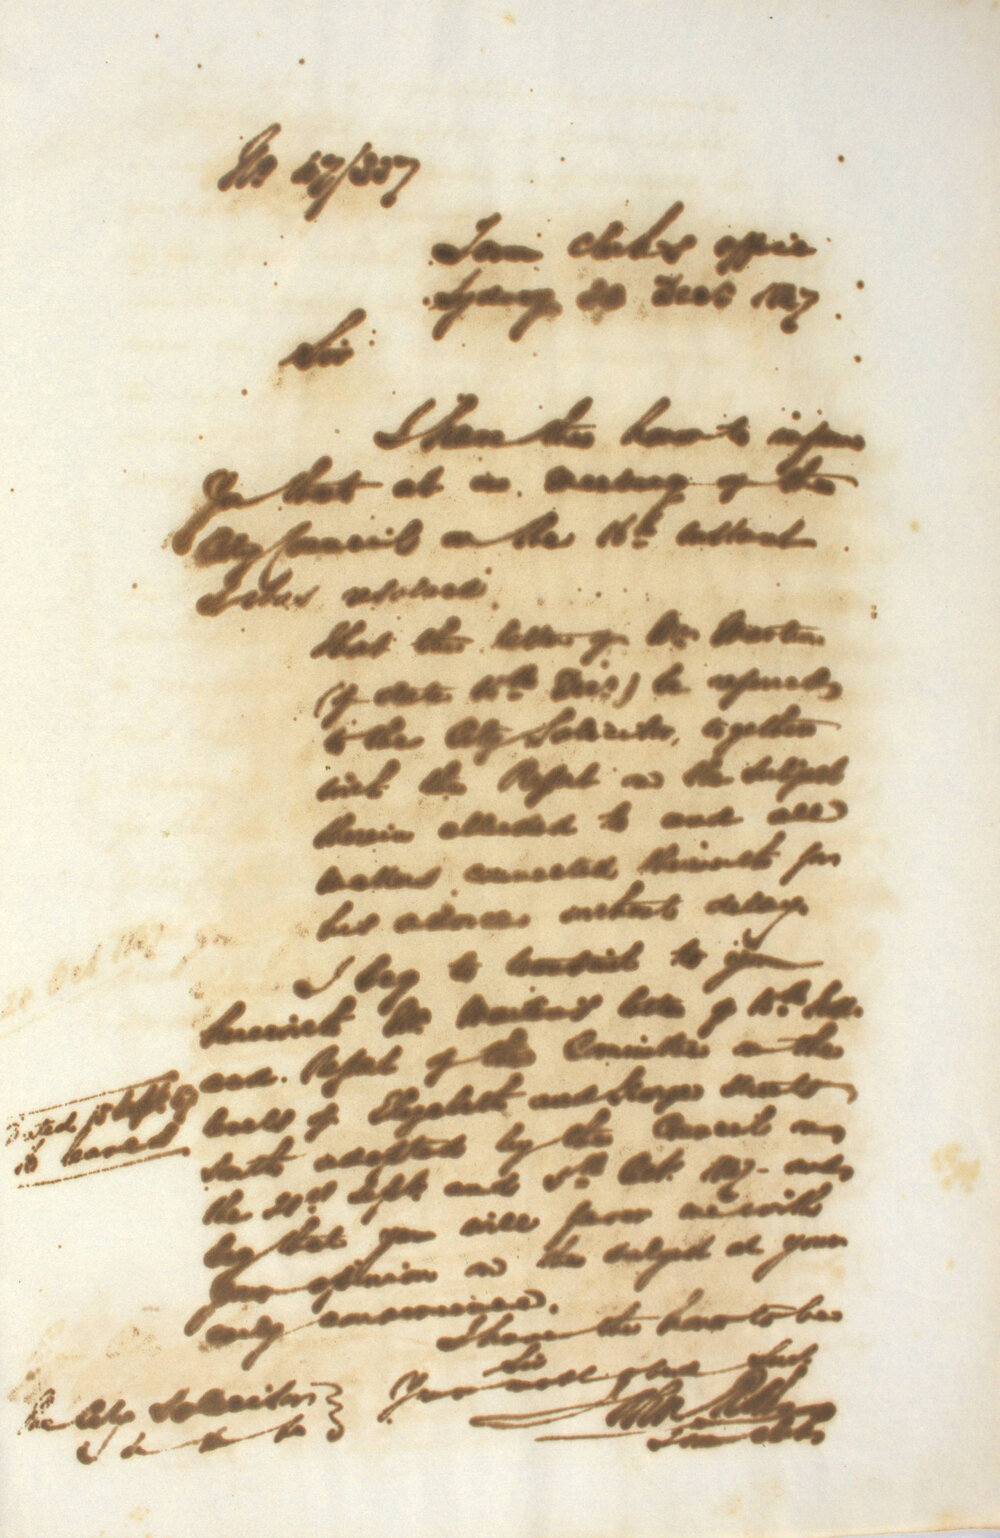 No 47/337
Town Clerk's Office
Sydney 20 Decr 1847
Sir
I have the honor to inform
You that at a meeting of the
City Council on the 16th Instant
It was resolved
That the letter of Mr Martin
(of date 10th Dec) be referred
to the City Solicitor, together
with the Report on the subject
therein alluded to and all
matters connected therewith for
his advice without delay
I beg to transmit to you
herewith Mr Martin's letter of 10th Inst.
and Report of the Committee on the
levels of Elizabeth and George Streets
adopted by the Council on
the 21st Sept and 5th Oct. 1847 - and
beg that you will favor me with
your opinion on the subject at your
early convenience.
I have the honor to be
Sir
Your most obed Servt
Town Clerk
The City Solicitor
Dated 15 Sept 47